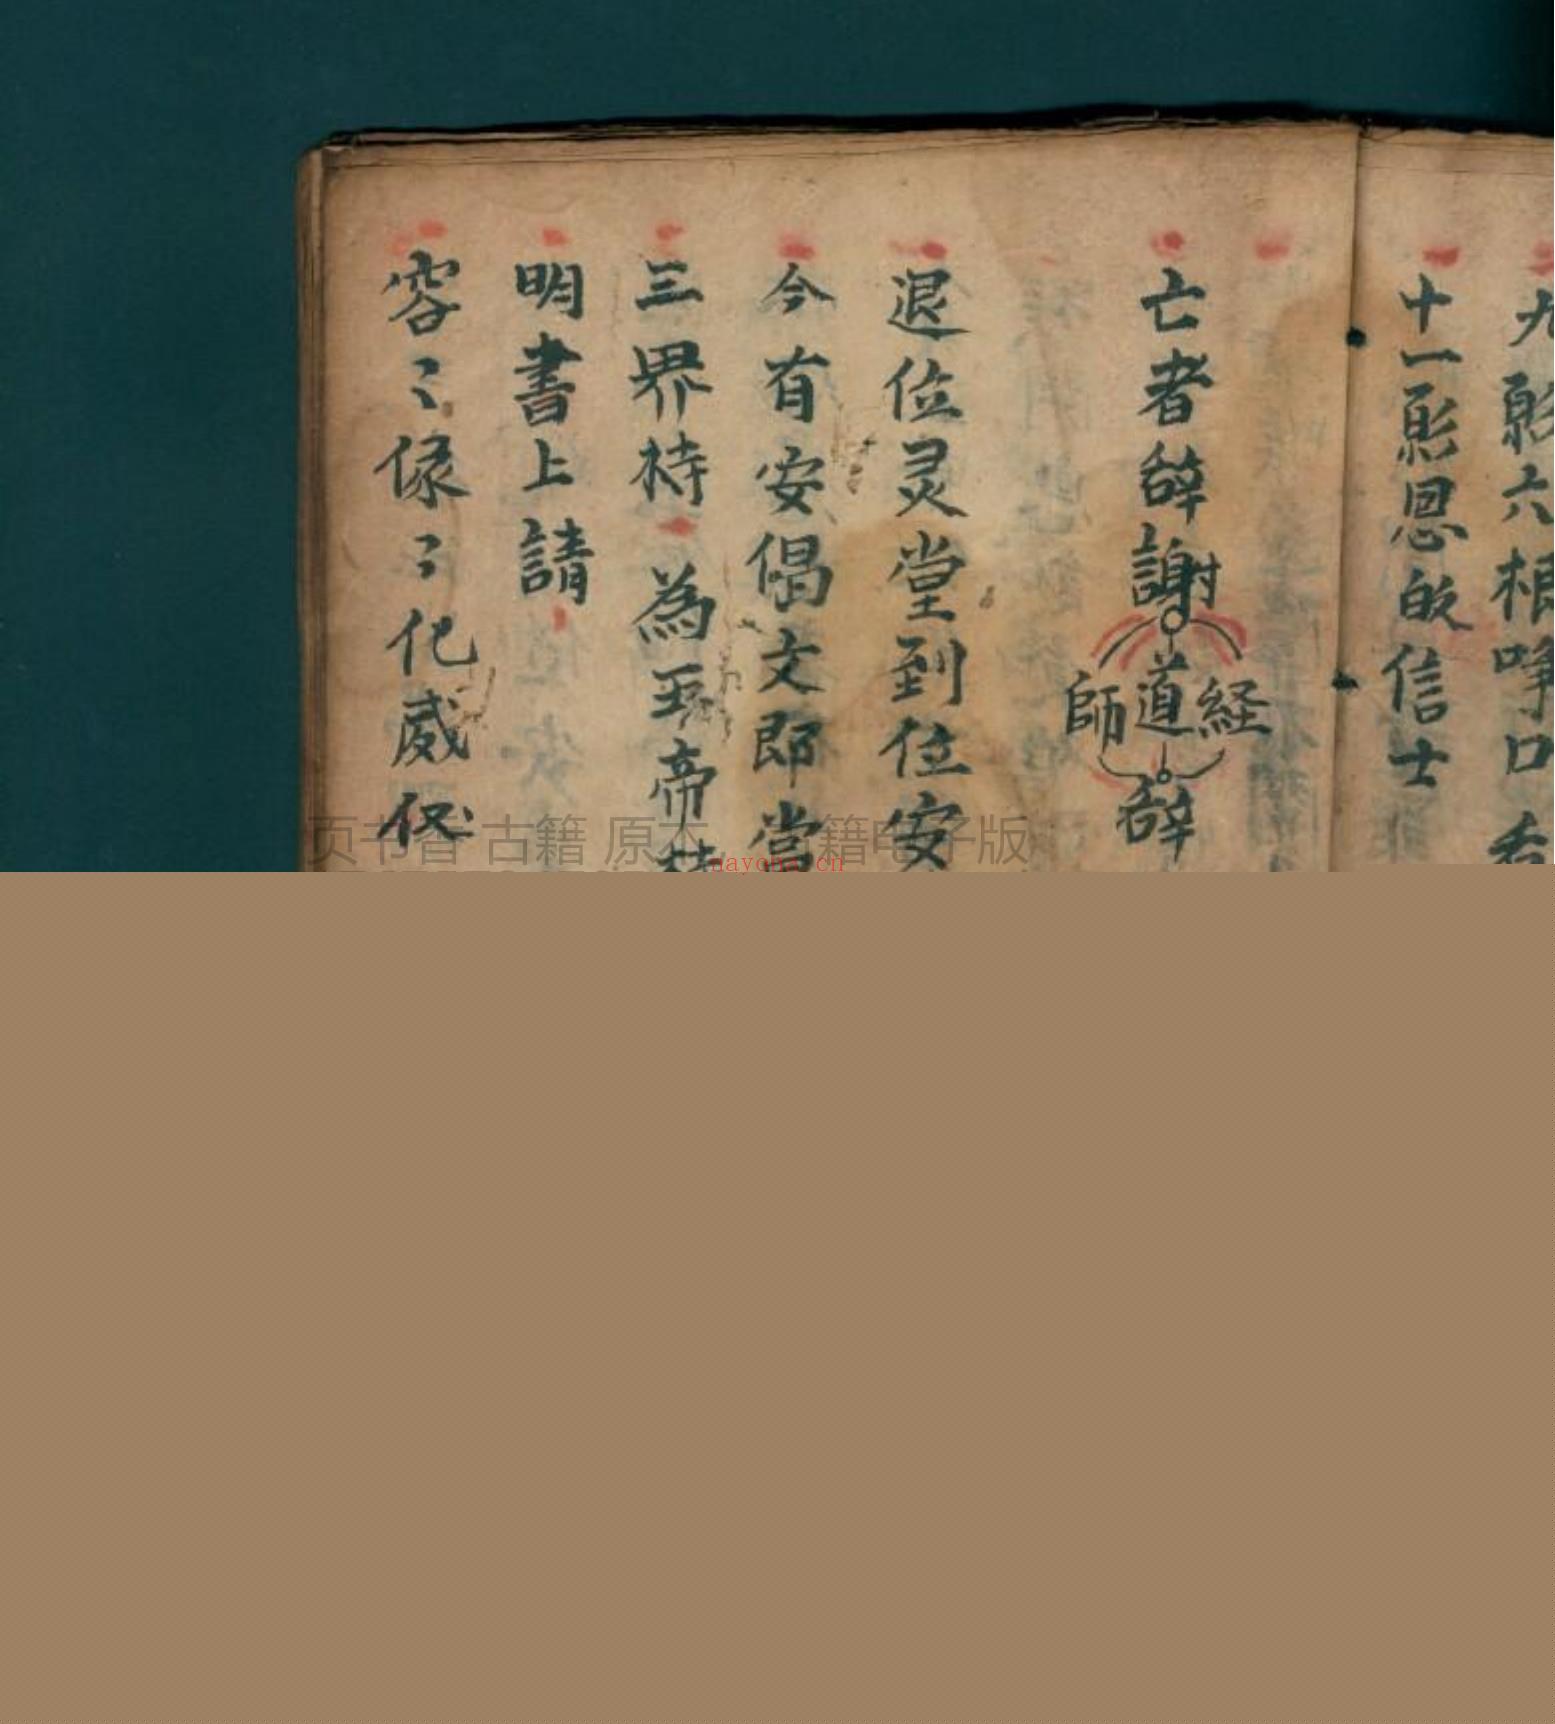 九
六根
口
十一
恩
信士
亡者辞謝
經道師
辞
退位灵堂到位安
今有安倡文郎當
三界持為玉帝
明書上請
容〻像〻化威仪
页书香 古籍 原本 古籍电子版
aayoha.cn